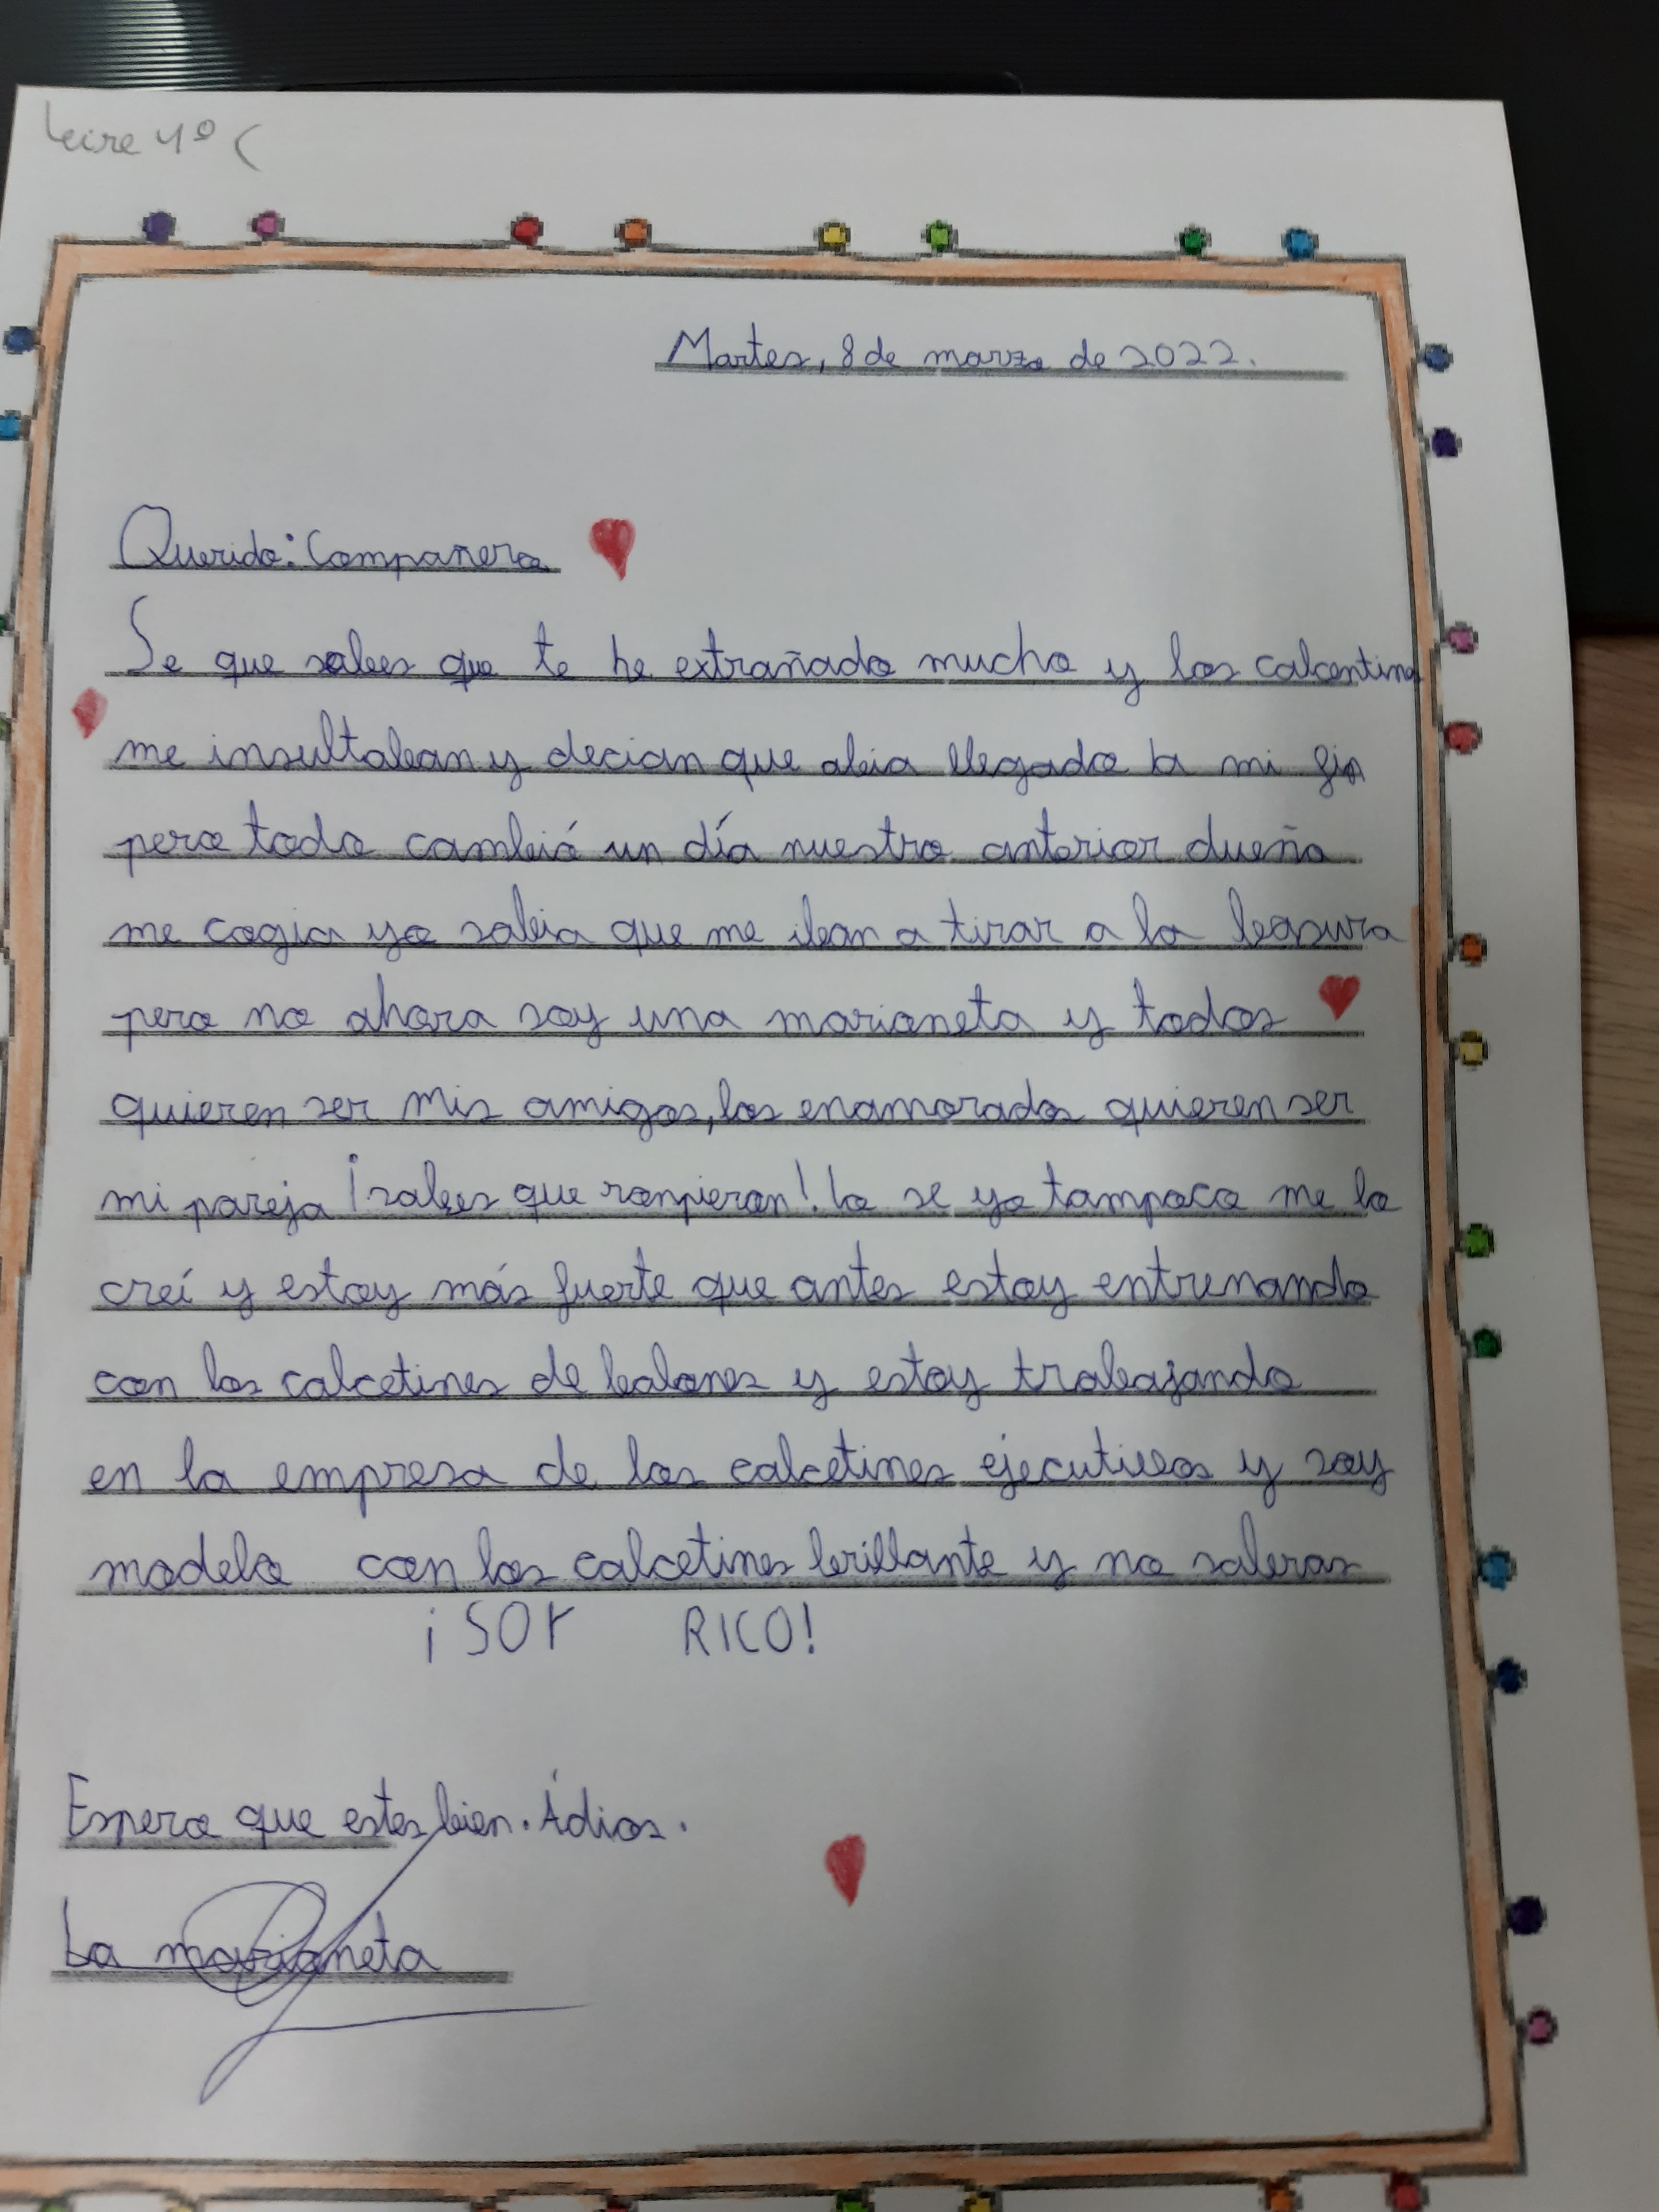 Leire 4º C
Martes, 8 de marzo de 2022.
Querido: Compañero
Se que sabes que te he extrañado mucho y los calcentines
me insultaban y decian que abia llegado a mi fin
pero todo cambió un día nuestro anterior dueño
me cogia yo sabia que me iban a tirar a la basura
pero no ahora soy una marioneta y todos
quieren ser mis amigos, los enamorados quieren ser
mi pareja ¡sabes que ronpieron! Lo se yo tampoco me lo
creí y estoy más fuerte que antes estoy entrenando
con los calcetines de balones y estoy trabajando
en la empresa de los calcetines ejecutivos y soy
modelo con los calcetines brillante y no saberas
¡SOY RICO!
Espero que estes bien. Ádios.
La marioneta